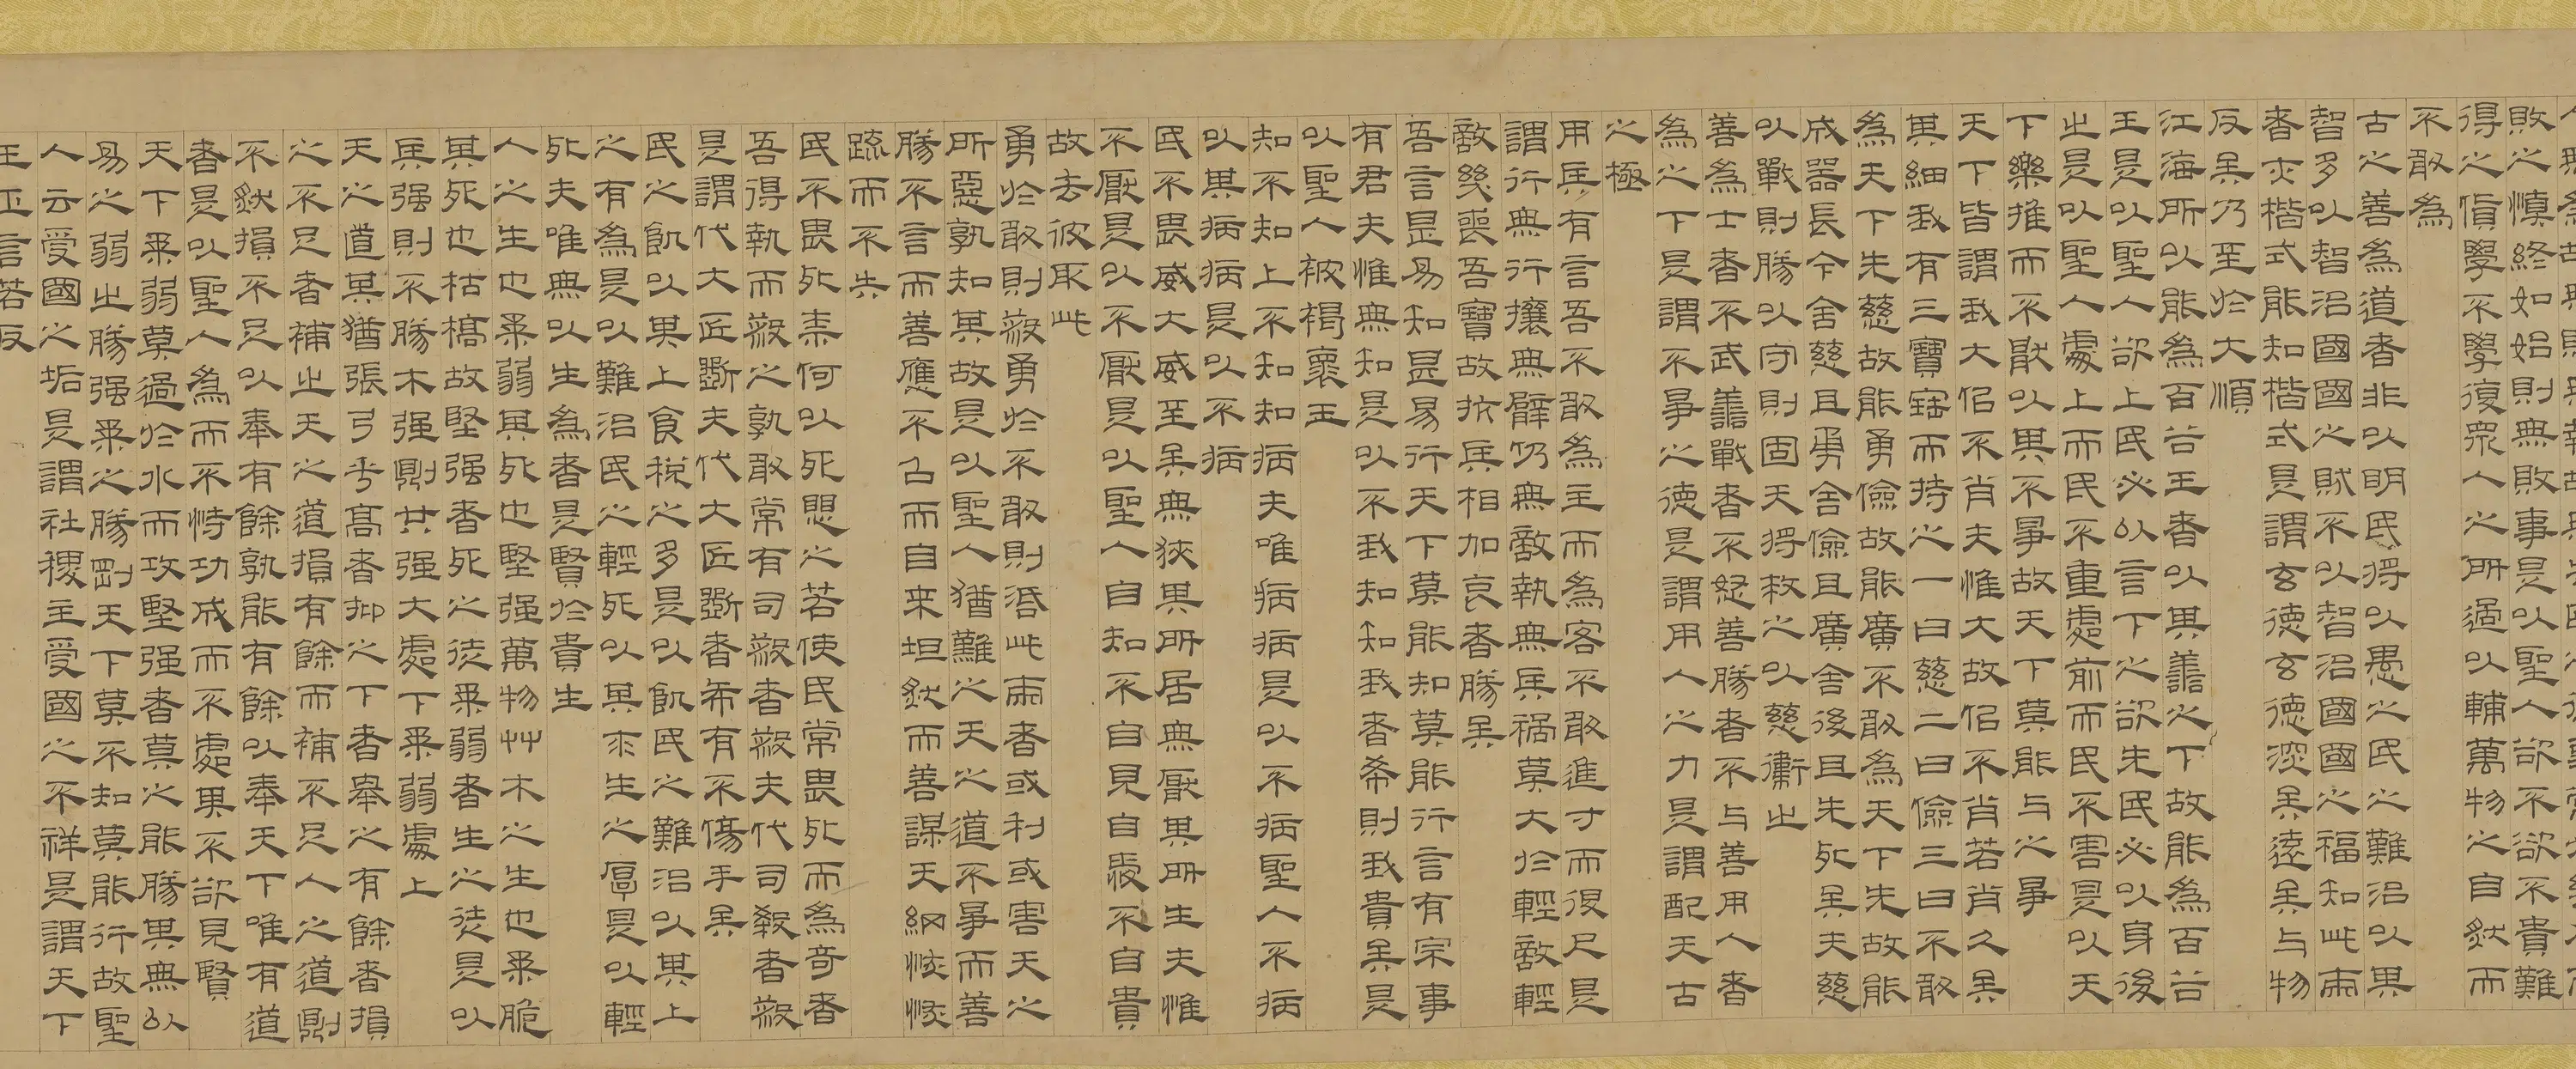 敗之慎終如始則無敗事是以聖人欲不欲不貴難
得之貨學不學復眾人之所過以輔萬物之自然而
不敢為
古之善為道者非以明民將以愚之民之難治以其
智多以智治國國之賊不以智治國國之福知此兩
者亦楷式能知楷式是謂玄德玄德深矣遠矣与物
反矣乃至於大順
江海所以能為百谷王者以其善之下故能為百谷
王是以聖人欲上民必以言下之欲先民必以身後
之是以聖人處上而民不重處前而民不害是以天
下樂推而不厭以其不爭故天下莫能与之爭
天下皆謂我大似不肖夫惟大故似不肖若肖久矣
其細我有三寶寶而持之一曰慈二曰儉三曰不敢
為天下先慈故能勇儉故能廣不敢為天下先故能
成器長今舍慈且勇舍儉且廣舍後且先死矣夫慈
以戰則勝以守則固天將救之以慈衛之
善為士者不武善戰者不怒善勝者不与善用人者
為之下是謂不爭之德是謂用人之力是謂配天古
之極
用兵有言吾不敢為主而為客不敢進寸而退尺是
謂行無行攘無臂仍無敵執無兵禍莫大於輕敵輕
敵幾喪吾寶故抗兵相加哀者勝矣
吾言甚易知甚易行天下莫能知莫能行言有宗事
有君夫惟無知是以不我知知我者希則我貴矣是
以聖人被褐褱玉
知不知上不知知病夫唯病病是以不病聖人不病
以其病病是以不病
民不畏威大威至矣無狹其所居無厭其所生夫惟
不厭是以不厭是以聖人自知不自見自愛不自貴
故去彼取此
勇於敢則殺勇於不敢則活此兩者或利或害天之
所惡孰知其故是以聖人猶難之天之道不爭而善
勝不言而善應不召而自来坦然而善謀天網恢恢
疏而不失
民不畏死柰何以死懼之若使民常畏死而為奇者
吾得執而殺之孰敢常有司殺者殺夫代司殺者殺
是謂代大匠斲夫代大匠斲者希有不傷手矣
民之飢以其上食稅之多是以飢民之難治以其上
之有為是以難治民之輕死以其求生之厚是以輕
死夫唯無以生為者是賢於貴生
人之生也柔弱其死也堅强萬物艸木之生也柔脆
其死也枯槁故堅强者死之徒柔弱者生之徒是以
兵强則不勝木强則共强大處下柔弱處上
天之道其猶張弓乎高者抑之下者舉之有餘者損
之不足者補之天之道損有餘而補不足人之道則
不然損不足以奉有餘孰能有餘以奉天下唯有道
者是以聖人為而不恃功成而不處其不欲見賢
天下柔弱莫過於水而攻堅强者莫之能勝其無以
易之弱之勝强柔之勝剛天下莫不知莫能行故聖
人云受國之垢是謂社稷主受國之不祥是謂天下
王正言若反